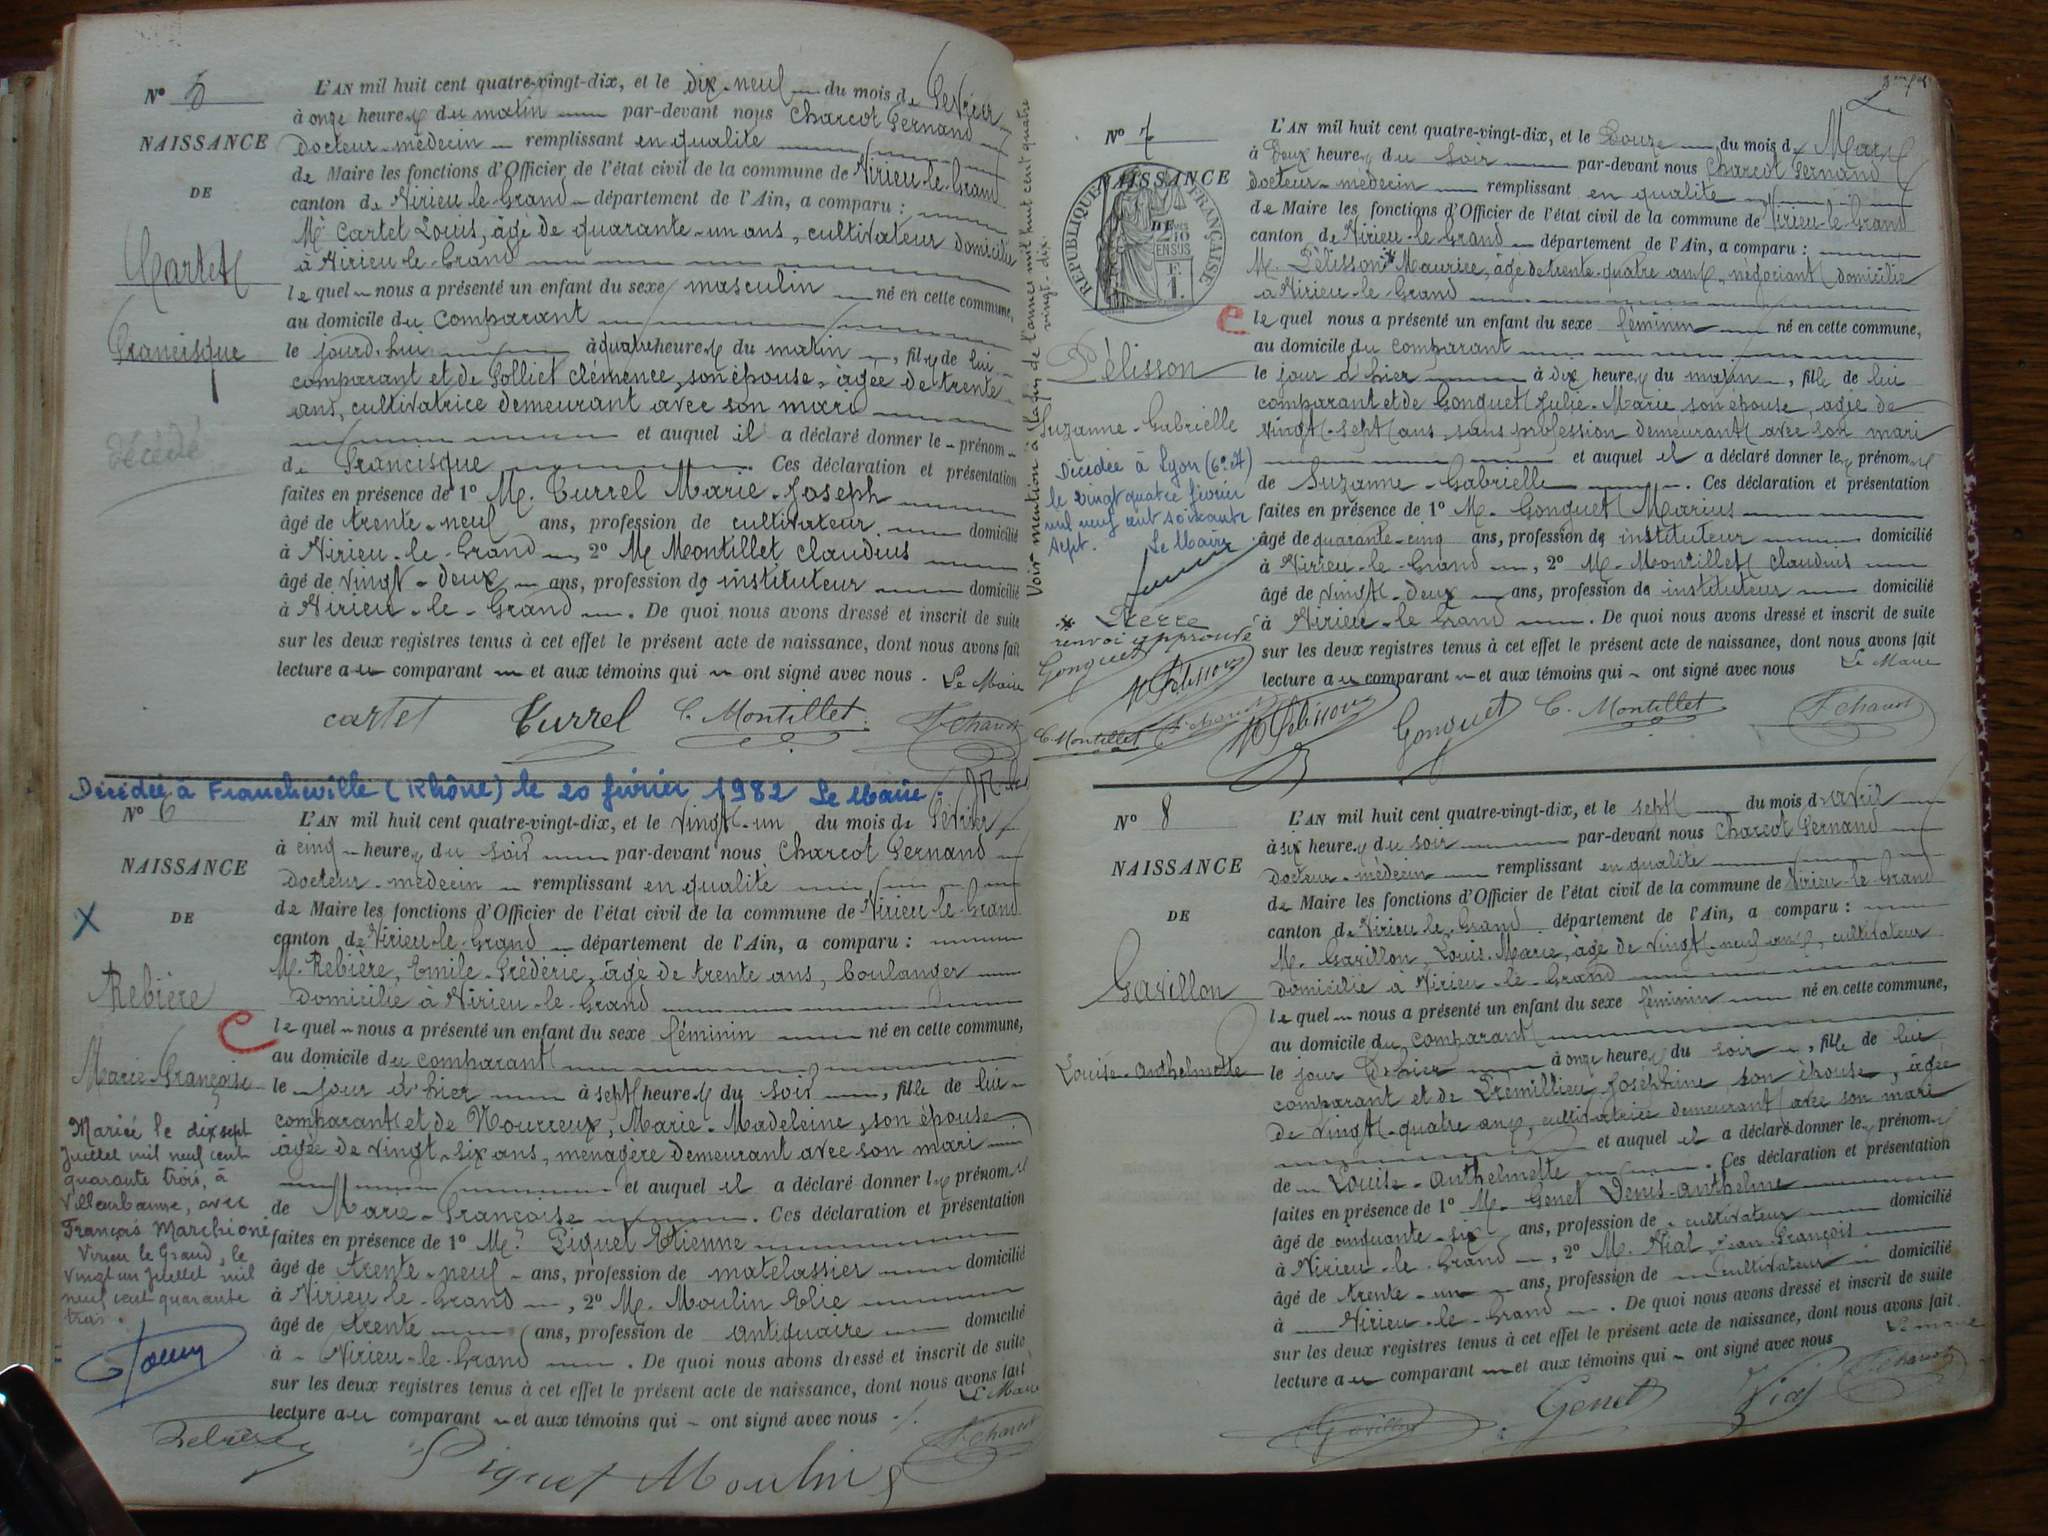 N° 5
NAISSANCE
DE
Cartet
Francisque
décédé
L'AN mil huit cent quatre-vingt-dix, et le dix-neuf du mois de Février
à onze heures du matin par-devant nous Charcot Fernand
Docteur-médecin remplissant en qualité
de Maire les fonctions d'Officier de l'état civil de la commune de Virieu-le-Grand
canton de Virieu-le-Grand département de l'Ain, a comparu :
Mr Cartet Louis, âgé de quarante-un ans, cultivateur domicilié
à Virieu-le-Grand
lequel nous a présenté un enfant du sexe masculin né en cette commune,
au domicile du comparant
le jourd'hui à quatre heures du matin, fils de lui
comparant et de Folliet Clémence, son épouse, âgée de trente
ans, cultivatrice demeurant avec son mari
et auquel il a déclaré donner le prénom
de Francisque. Ces déclaration et présentation
faites en présence de 1° M. Turrel Marie-Joseph
âgé de trente-neuf ans, profession de cultivateur domicilié
à Virieu-le-Grand, 2° M Montillet Claudius
âgé de vingt-deux ans, profession de instituteur domicilié
à Virieu-le-Grand. De quoi nous avons dressé et inscrit de suite
sur les deux registres tenus à cet effet le présent acte de naissance, dont nous avons fait
lecture au comparant et aux témoins qui ont signé avec nous. Le Maire
cartet Turrel C. Montillet F. Charcot
Voir mention à la fin de l'année mil huit cent quatre
vingt-dix.
Décédée à Francheville (Rhône) le 20 février 1982 Le Maire.
N° 6
NAISSANCE
DE
X
Rebière
Marie-Françoise
Mariée le dix sept
Juillet mil neuf cent
quarante trois, à
Villeurbanne, avec
François Marchioni
Virieu le Grand, le
vingt un juillet mil
neuf cent quarante
trois.
L'AN mil huit cent quatre-vingt-dix, et le vingt-un du mois de Février
à cinq heures du soir par-devant nous Charcot Fernand
Docteur-médecin remplissant en qualité
de Maire les fonctions d'Officier de l'état civil de la commune de Virieu-le-Grand
canton de Virieu-le-Grand département de l'Ain, a comparu :
M. Rebière, Emile-Frédéric, âgé de trente ans, boulanger
domicilié à Virieu-le-Grand
lequel nous a présenté un enfant du sexe féminin né en cette commune,
au domicile du comparant
le jour d'hier à sept heures du soir, fille de lui
comparant et de Nourreux, Marie-Madeleine, son épouse
âgée de vingt-six ans, ménagère demeurant avec son mari
et auquel il a déclaré donner les prénoms
de Marie-Françoise. Ces déclaration et présentation
faites en présence de 1° Mr Piguet Etienne
âgé de trente-neuf ans, profession de matelassier domicilié
à Virieu-le-Grand, 2° M. Moulin Elie
âgé de trente ans, profession de antiquaire domicilié
à Virieu-le-Grand. De quoi nous avons dressé et inscrit de suite
sur les deux registres tenus à cet effet le présent acte de naissance, dont nous avons fait
lecture au comparant et aux témoins qui ont signé avec nous. Le Maire
Rebière Piguet Moulin F. Charcot
N° 7
NAISSANCE
DE
RÉPUBLIQUE FRANÇAISE
2/10 EN SUS
F. 1.
Pélisson
Suzanne-Gabrielle
Décédée à Lyon (6e At)
le vingt quatre février
mil neuf cent soixante
sept. Le Maire
* Pierre
renvoi approuvé
Gonguet
M Pelisson
C. Montillet F. Charcot
L'AN mil huit cent quatre-vingt-dix, et le Douze du mois de Mars
à Deux heures du soir par-devant nous Charcot Fernand
Docteur-médecin remplissant en qualité
de Maire les fonctions d'Officier de l'état civil de la commune de Virieu-le-Grand
canton de Virieu-le-Grand département de l'Ain, a comparu :
M. Pélisson * Maurice, âgé de trente-quatre ans, négociant domicilié
à Virieu-le-Grand
lequel nous a présenté un enfant du sexe féminin né en cette commune,
au domicile du comparant
le jour d'hier à dix heures du matin, fille de lui
comparant et de Gonguet Julie-Marie son épouse, âgée de
vingt-sept ans, sans profession demeurant avec son mari
et auquel il a déclaré donner les prénoms
de Suzanne-Gabrielle. Ces déclaration et présentation
faites en présence de 1° M. Gonguet Marius
âgé de quarante-cinq ans, profession de instituteur domicilié
à Virieu-le-Grand, 2° M. Montillet Claudius
âgé de vingt-deux ans, profession de instituteur domicilié
à Virieu-le-Grand. De quoi nous avons dressé et inscrit de suite
sur les deux registres tenus à cet effet le présent acte de naissance, dont nous avons fait
lecture au comparant et aux témoins qui ont signé avec nous Le Maire
M Pelisson Gonguet C. Montillet F. Charcot
N° 8
NAISSANCE
DE
Gavillon
Louise-Anthelmette
L'AN mil huit cent quatre-vingt-dix, et le sept du mois d'avril
à six heures du soir par-devant nous Charcot Fernand
Docteur-médecin remplissant en qualité
de Maire les fonctions d'Officier de l'état civil de la commune de Virieu-le-Grand
canton de Virieu-le-Grand département de l'Ain, a comparu :
M. Gavillon, Louis-Marie, âgé de vingt-neuf ans, cultivateur
domicilié à Virieu-le-Grand
lequel nous a présenté un enfant du sexe féminin né en cette commune,
au domicile du comparant
le jour d'hier à onze heures du soir, fille de lui
comparant et de Prémillieu Joséphine son épouse, âgée
de vingt-quatre ans, cultivatrice demeurant avec son mari
et auquel il a déclaré donner les prénoms
de Louise-Anthelmette. Ces déclaration et présentation
faites en présence de 1° M. Genet Denis-Anthelme
âgé de cinquante-six ans, profession de cultivateur domicilié
à Virieu-le-Grand, 2° M. Vial Jean-François
âgé de trente-un ans, profession de cultivateur domicilié
à Virieu-le-Grand. De quoi nous avons dressé et inscrit de suite
sur les deux registres tenus à cet effet le présent acte de naissance, dont nous avons fait
lecture au comparant et aux témoins qui ont signé avec nous Le maire
Gavillon Genet Vial F. Charcot